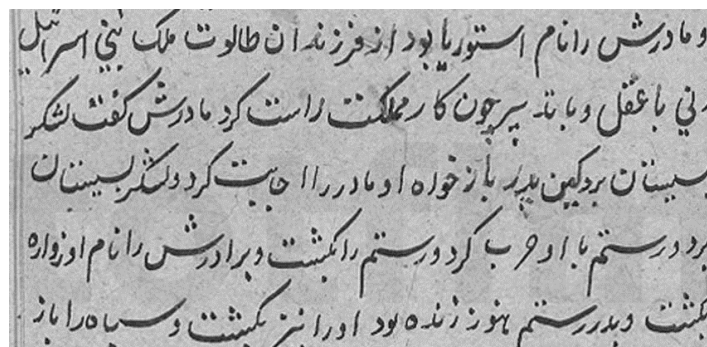 و مادرش را نام استوریا بود از فرزندان طالوت ملک بنی اسرائیل
زنی با عقل و با تدبیر چون کار مملکت راست کرد مادرش گفت لشکر
بسیستان بر و کین پدر باز خواه او مادر را اجابت کرد و لشکر بسیستان
برد و رستم با او حرب کرد و رستم را بکشت و برادرش را نام او زواره
بکشت و پدر رستم هنوز زنده بود او را نیز بکشت و سپاه را باز